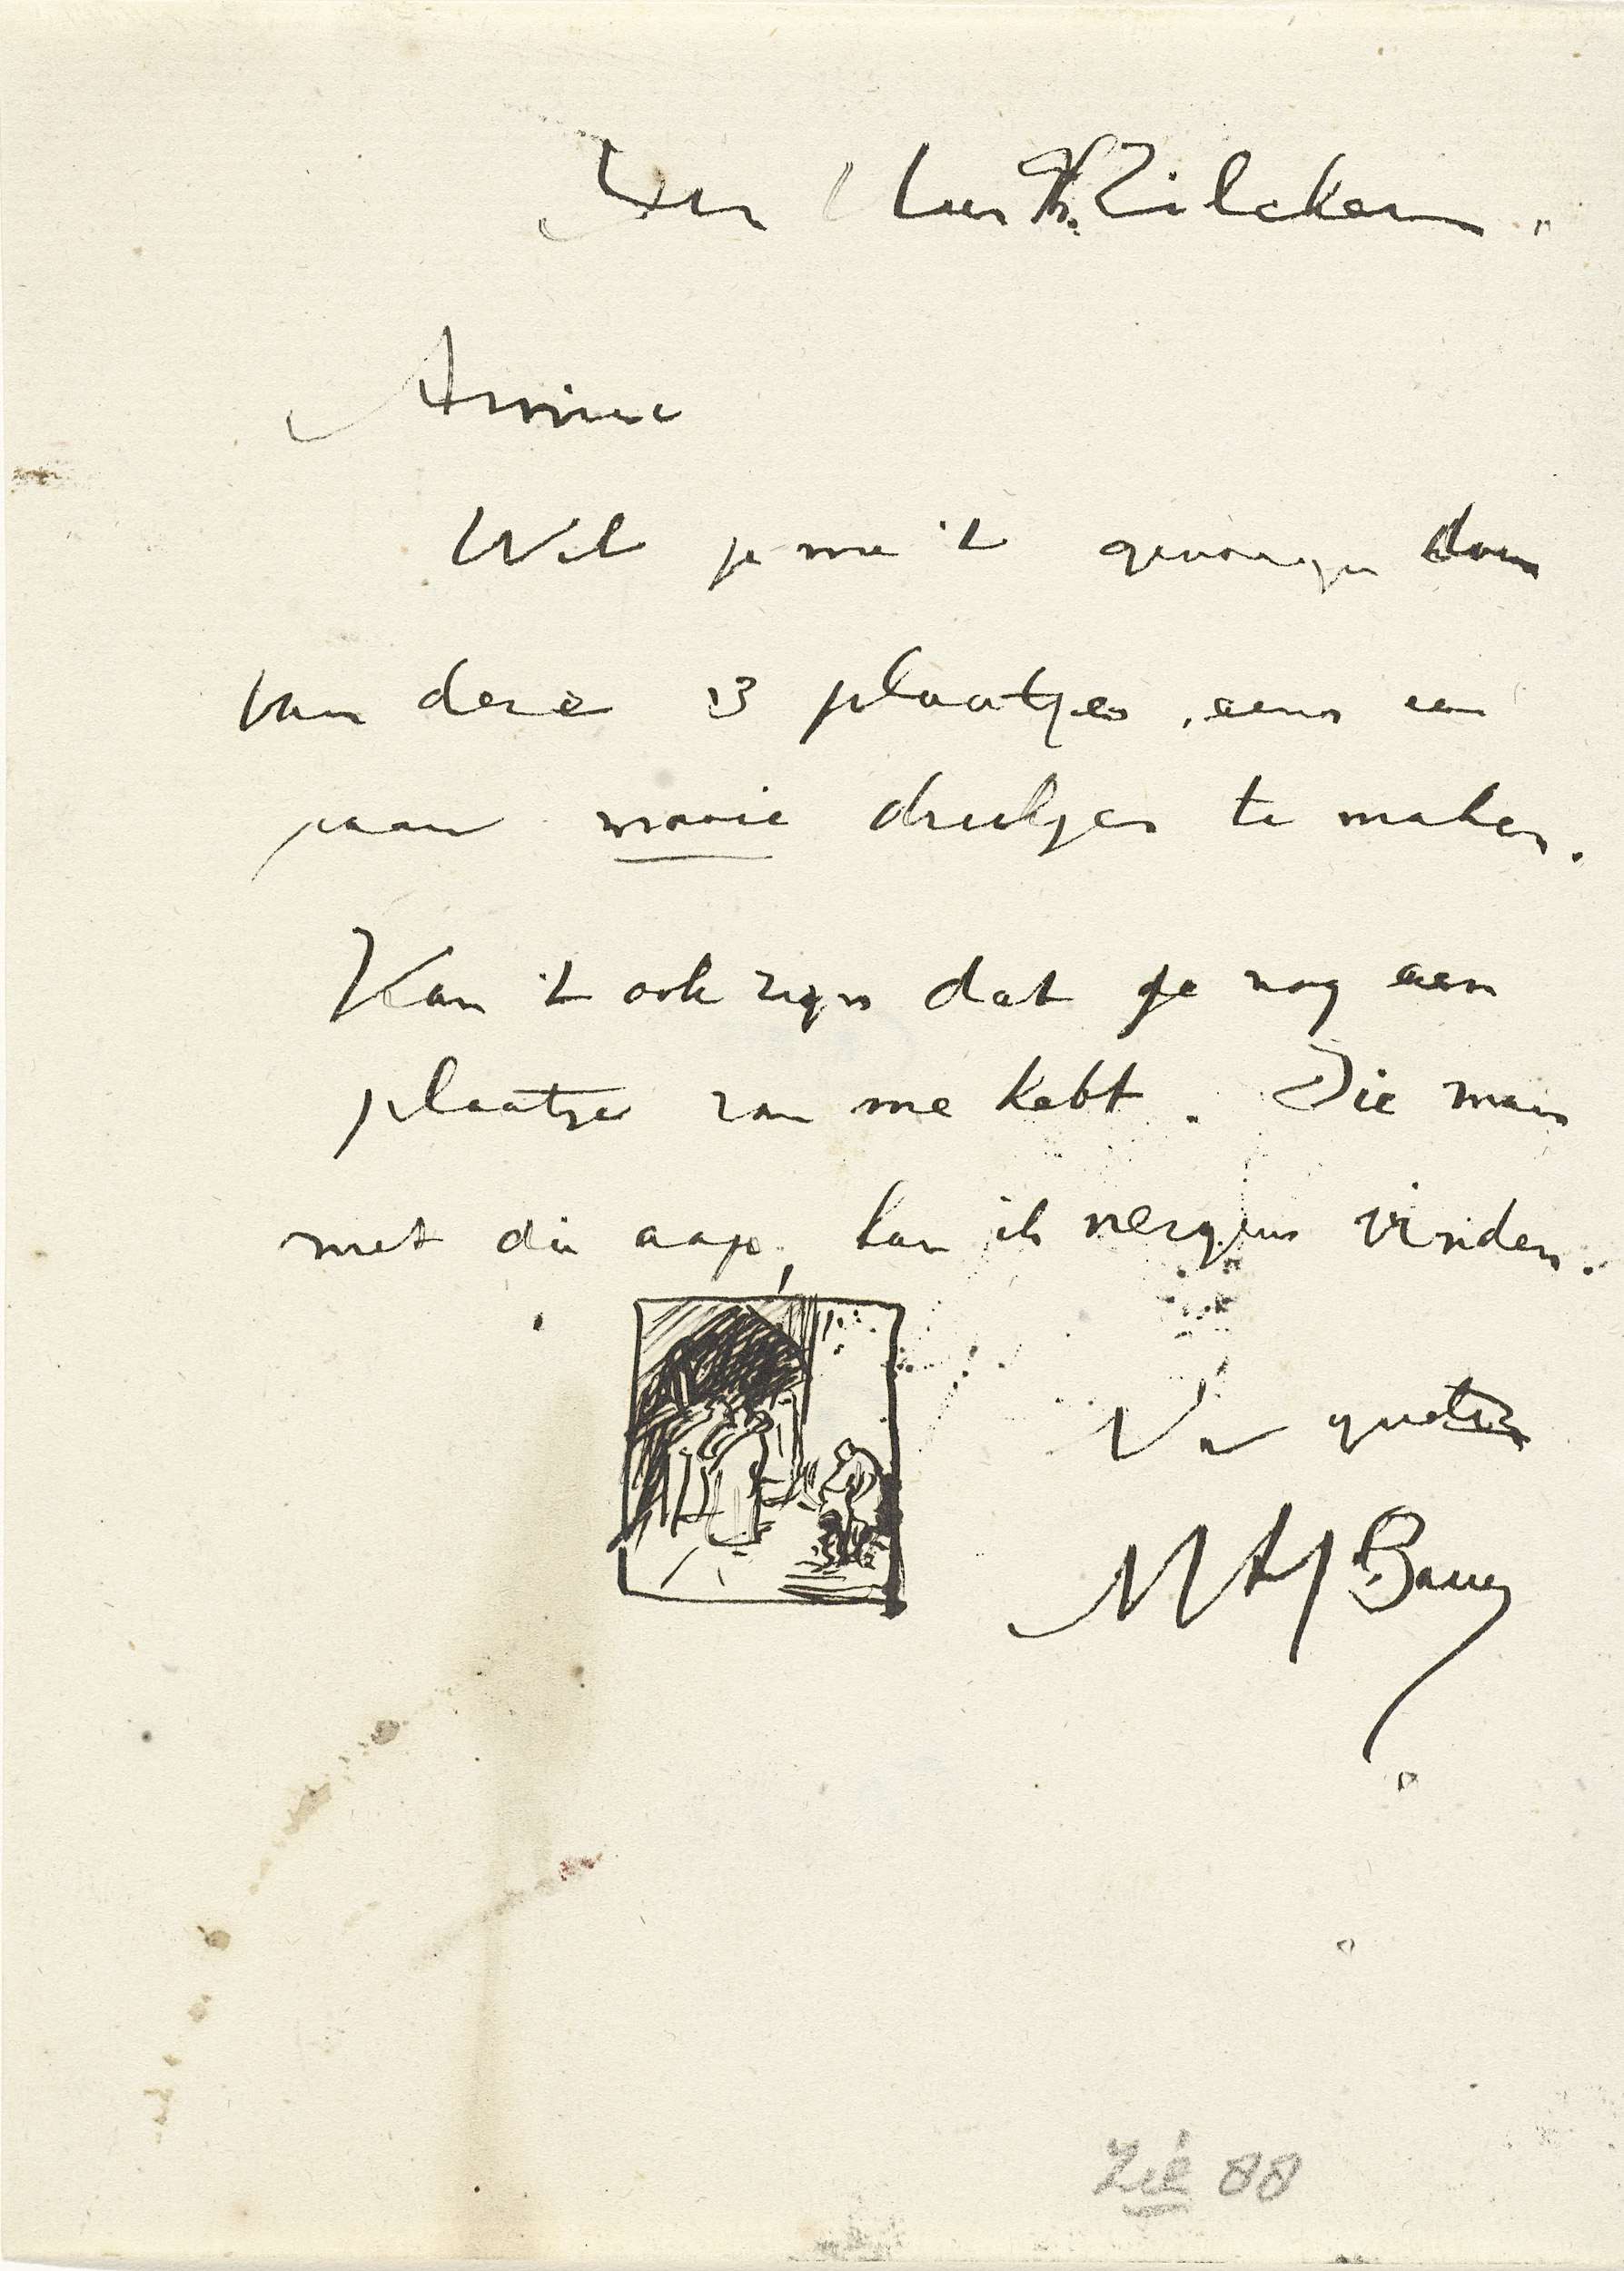 Den Heer Ph. Zilcken.
Amice
Wil je me 't genoegen doen
van deze 3 plaatjes eens een
paar mooie drukjes te maken.
Kan 't ook zijn dat je nog een
plaatje van me hebt. Die man
met die aap, kan ik nergens vinden.
Na groeten
MAJ Bauer
88